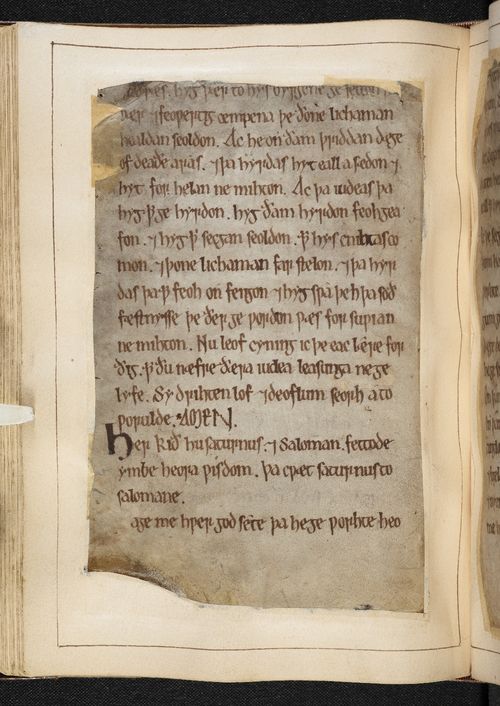 ƿæs. hyg þær to hys byrgene ge setton
ƿer ⁊ feoƿertig cempena þe ðone lichaman
healdan seoldon. Ac he on ðam þriddan dæge
of deaðe aras. ⁊ þa hyrdas hyt eall a sædon ⁊
hyt for helan ne mihton. Ac þa iudeas þa
hyg ꝥ ge hyrdon. hyg ðam hyrdon feoh gea
fon. ⁊ hyg ꝥ segan seoldon. ꝥ hys cnihtas co
mon. ⁊ þone lichaman far stelon. ⁊ þa hyr
das þa ꝥ feoh on fengon ⁊ hyg sƿa þeh þa soð
fæstnysse þe ðær ge ƿordon ƿæs for suƿian
ne mihton. Nu leof cyning ic þe eac lære for
ðig. ꝥ ðu næfre ðæra iudea leasinga ne ge
lyfe. Sy drihten lof ⁊ deoflum seorh a to
ƿorulde. AMEN.
Her kið hu saturnus. ⁊ Saloman. fettode
ymbe heora ƿisdom. þa cƿæt saturnus to
salomane.
age me hƿer god sete þa he ge ƿorhte heo